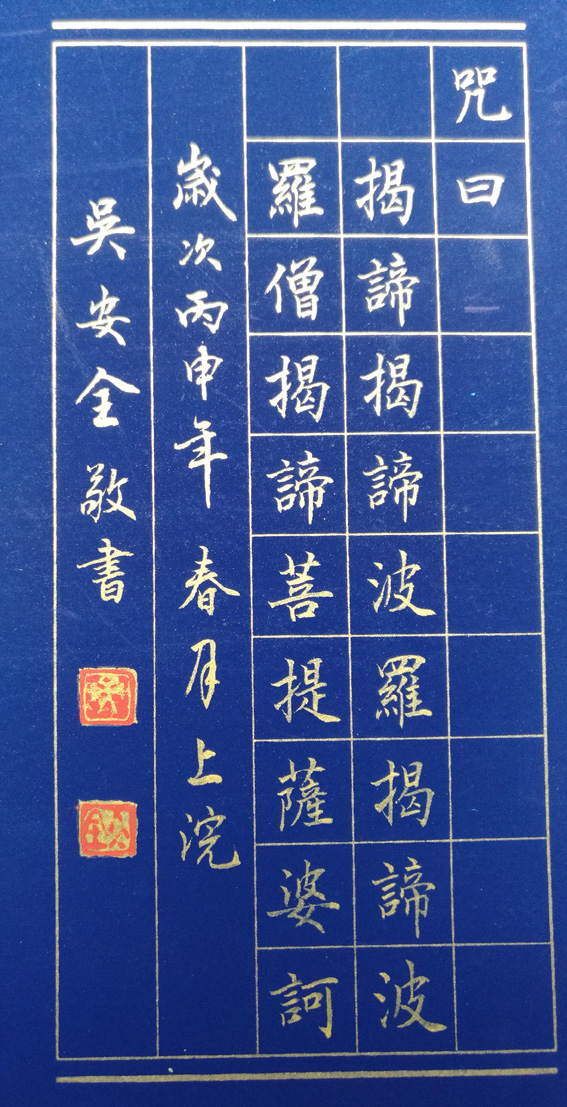 咒曰
揭諦揭諦波羅揭諦波
羅僧揭諦菩提薩婆訶
歲次丙申年春月上浣
吳安全敬書